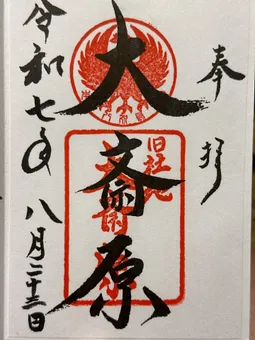 奉拝
旧社地
大斎原
令和七年八月二十三日